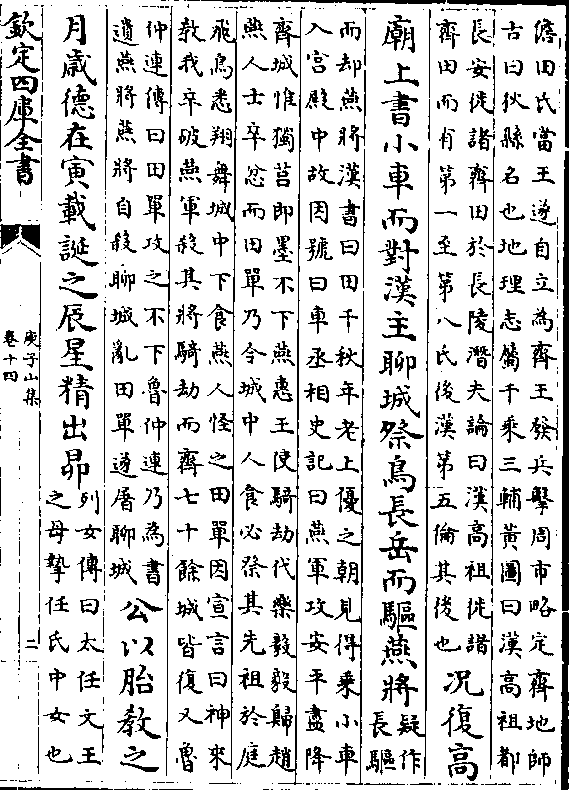 儋田氏當王遂自立為齊王發兵擊周市略定齊地師
古曰狄縣名也地理志屬千乘三輔黄圖曰漢高祖都
長安徙諸齊田於長陵潛夫論曰漢高祖徙諸
齊田而有第一至第八氏後漢第五倫其後也
况復高
廟上書小車而對漢主聊城祭鳥長岳而驅燕將
疑作
長驅
而却燕將漢書曰田千秋年老上優之朝見得乘小車
入宫殿中故因號曰車丞相史記曰燕軍攻安平盡降
齊城惟獨莒即墨不下燕惠王使騎劫代樂毅毅歸趙
燕人士卒忿而田單乃令城中人食必祭其先祖於庭
飛鳥悉翔舞城中下食燕人怪之田單因宣言曰神來
教我卒破燕軍殺其將騎劫而齊七十餘城皆復又魯
仲連傳曰田單攻之不下魯仲連乃為書
遺燕將燕將自殺聊城亂田單遂屠聊城
公以胎教之
月歲德在寅載誕之辰星精出昴
列女傳曰太任文王
之母摯任氏中女也
欽定四庫全書
庾子山集
卷十四
二